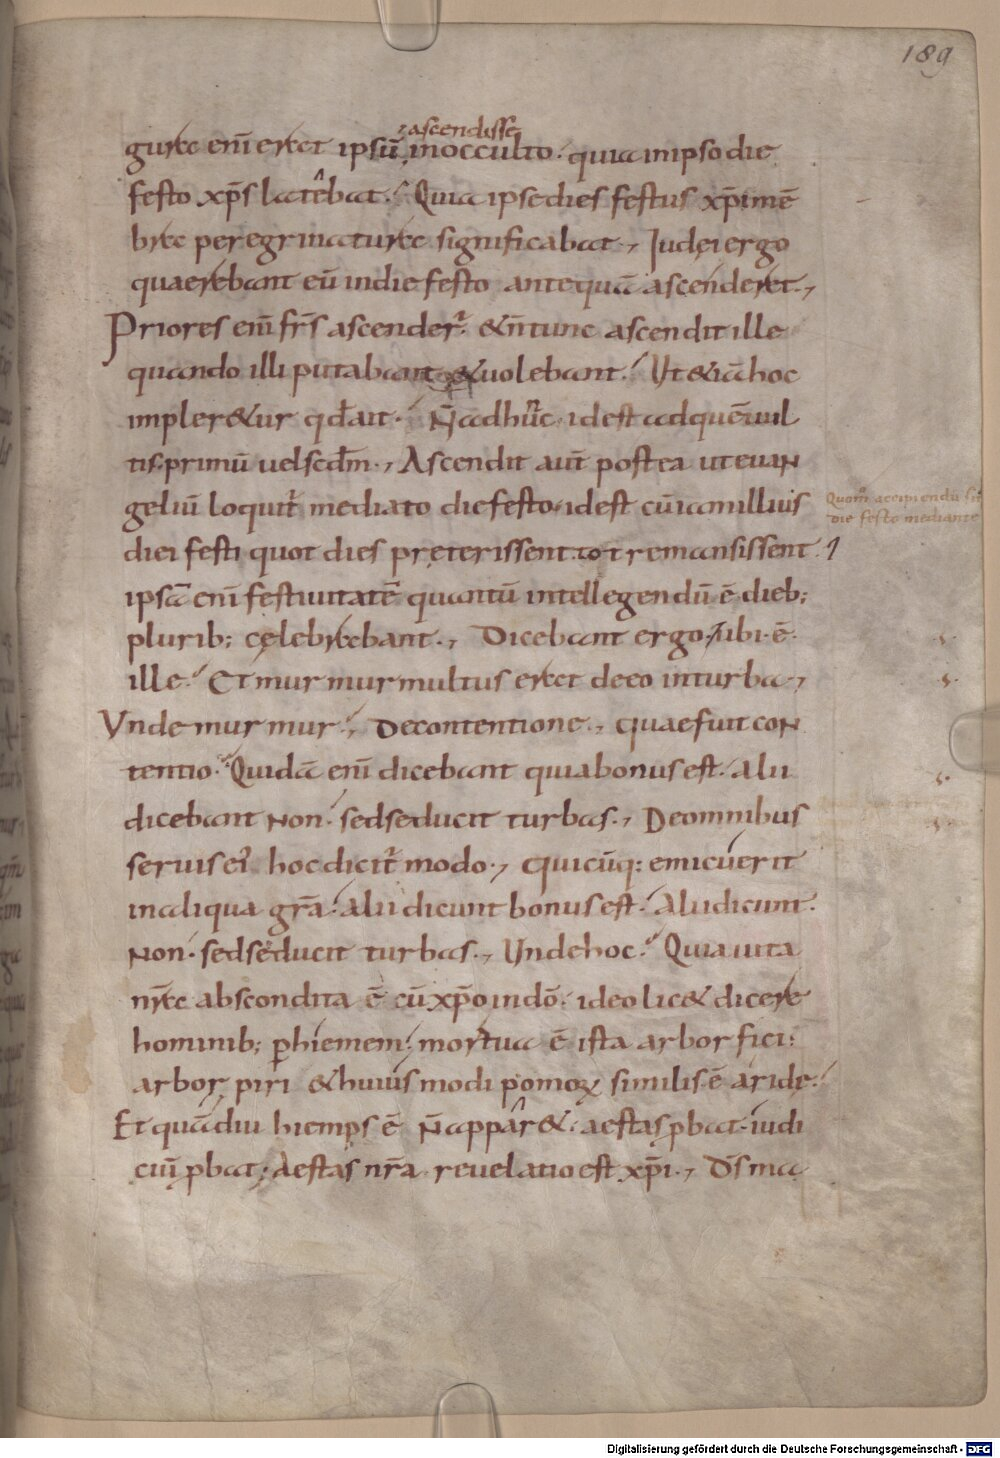 189
ascendisse
gura enī erat ipsū inocculto. quia inipso die
festo xp̄s latebat. Quia ipse dies festus xp̄i mē
bra peregrinatura significabat., Iudei ergo
quaerebant eū indie festo antequā ascenderet.,
Priores enī fr̄s ascender̄. & n̄ tunc ascendit ille
quando illi putabant & uolebant. Ut & iā hoc
impler&ur qđ ait. N̄ adhūc idest ad quē uul
tis primū uel scđm., Ascendit aut̄ postea ut euan
geliū loquit̄ mediato die festo. idest cū iam illius
diei festi quot dies pręterissent tot remansissent
ipsā enī festiuitatē quantū intellegendū ē dieb;
plurib; cęlebrabant., Dicebant ergo. ubi. ē.
ille. Et murmur multus erat de eo in turba.,
Vnde murmur. De contentione., quae fuit con
tentio. Quidā enī dicebant quia bonus est. alii
dicebant Non. sed seducit turbas., De omnibus
seruis ei' hoc dicit̄ modo., Quicūq; emicuerit
in aliqua gr̄a. alii dicunt bonus est. Alii dicunt.
Non. sed seducit turbas., Unde hoc. Quia uita
nr̄a abscondita ē cū xp̄o in dō. ideo lic& dicere
hominib; p hiemem. mortua ē ista arbor fici.
arbor piri & huius modi pomoꝝ similis ē aridę.
Et quādiu hiemps ē N̄ appar&. aestas p̱bat. iudi
ciū p̱bat. Aestas nr̄a reuelatio est xp̄i., D̄s ma
Quom̄ accipiendū sit
die festo mediante
Digitalisierung gefördert durch die Deutsche Forschungsgemeinschaft - DFG